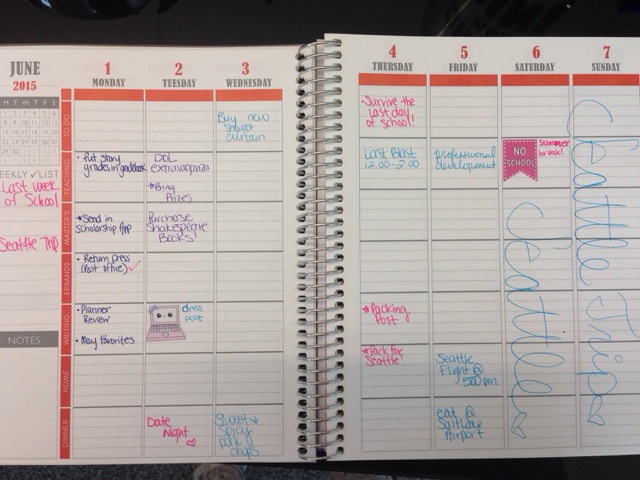 JUNE
2015
M T W T F S
WEEKLY ✓ LIST
Last week
of School
Seattle Trip
NOTES
1
MONDAY
2
TUESDAY
3
WEDNESDAY
TO DO
Buy new
shower
curtain
TEACHING
• Put story
grades in gradebook
DOL
extravaganza
*Bring
Prizes
MASTER'S
*Send in
Scholarship App
Purchase
Shakespeare
Books
ERRANDS
• Return Dress
(Post office) ✓
WRITING
• Planner
Review
• May Favorites
dress
post
HOME
DINNER
Date
Night ♡
Sweet &
Spicy
pork
chops
4
THURSDAY
5
FRIDAY
6
SATURDAY
7
SUNDAY
• Survive the
last day
of school!
Last Blast
12:00-2:00
professional
development
NO
SCHOOL
Summer
break!
*Packing
Post
*Pack for
Seattle!
Seattle
Flight @
5:00 pm
eat @
Salt Lake
Airport
Seattle
Seattle Trip